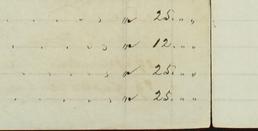 " 25. "
" 12. "
" 25. "
" 25. "